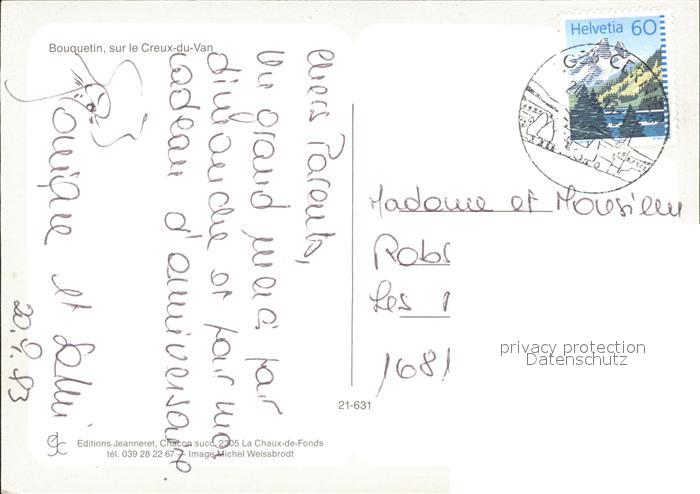 Bouquetin, sur le Creux-du-Van
Helvetia 60
Chers Parents,
Un grand merci par
dimanche et par mon
cadeau d'anniversaire.
Monique et
20.9.93
Madame et Monsieur
Les
1681
privacy protection
Datenschutz
21-631
Editions Jeanneret, Chacon succ. 2305 La Chaux-de-Fonds
tél. 039 28 22 67 - Image Michel Weissbrodt